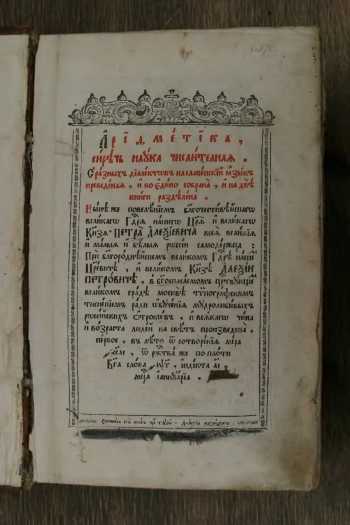 Арїѳме́тїка,
сирѣчь наука числителная.
Съ разныхъ дїалектовъ на славенскїй языкъ
преведеная, и во едино собрана, и на двѣ
книги раздѣлена.
Нынѣ же повелѣнїемъ благочестивѣйшагѡ
великагѡ Гдⷭ҇рѧ нашегѡ Цр҃ѧ и великагѡ
Кн҃зѧ ПЕТРА АЛЕѮІЕВИЧА всеѧ великїѧ
и малыѧ и бѣлыѧ рѡссїи самодержца:
При благороднѣйшемъ великомъ Гдⷭ҇рѣ нашемъ
Цр҃евичѣ, и великомъ Кн҃зѣ АЛЕѮІИ
ПЕТРОВИЧѢ, в бг҃оспасаемомъ царствующемъ
великомъ градѣ москвѣ типографскимъ
тисненїемъ ради ѡбученїѧ мудролюбивыхъ
рѡссїйскихъ ѻтрокѡвъ, и всѧкагѡ чина
и возраста людей на свѣтъ произведена
первое, в лѣто ѿ сотворенїѧ мїра
҂зс҃аі, ѿ ржⷭ҇тва же по плоти
Бг҃а слова ҂аѱг҃, индїкта аі҃
мцⷭ҇а їаннуарїа.